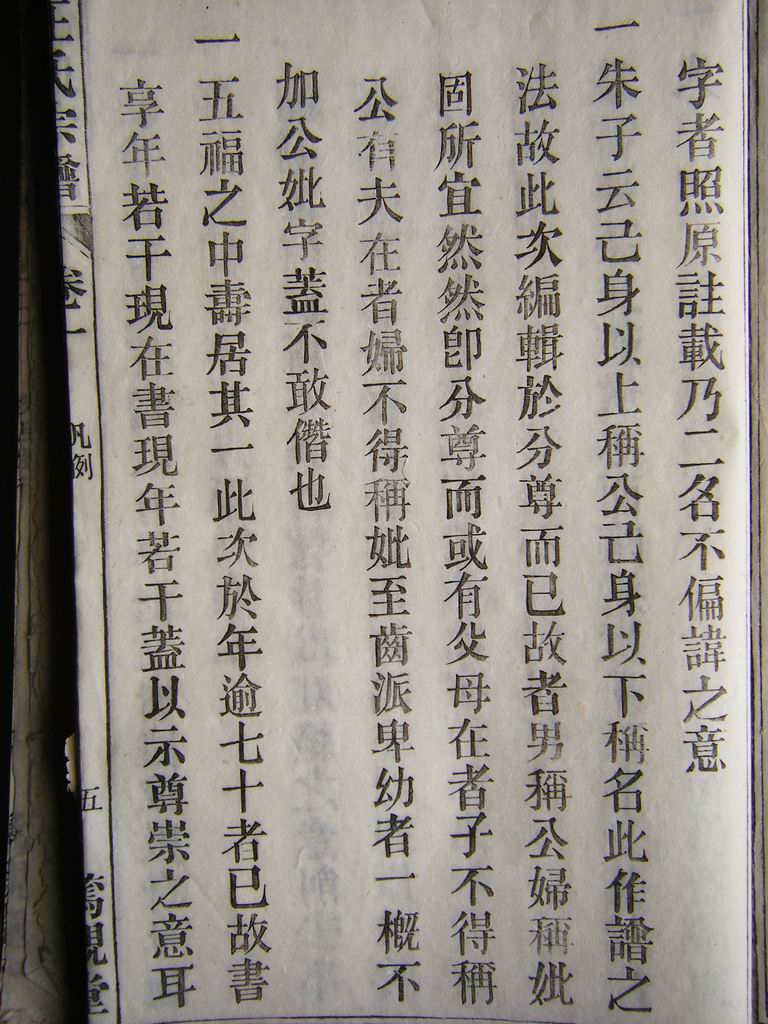 字者照原註載乃二名不偏諱之意
一朱子云己身以上稱公己身以下稱名此作譜之
法故此次編輯於分尊而已故者男稱公婦稱妣
固所宜然然卽分尊而或有父母在者子不得稱
公有夫在者婦不得稱妣至齒派卑幼者一概不
加公妣字蓋不敢僭也
一五福之中壽居其一此次於年逾七十者已故書
享年若干現在書現年若干蓋以示尊崇之意耳
氏宗譜 卷一 凡例 五